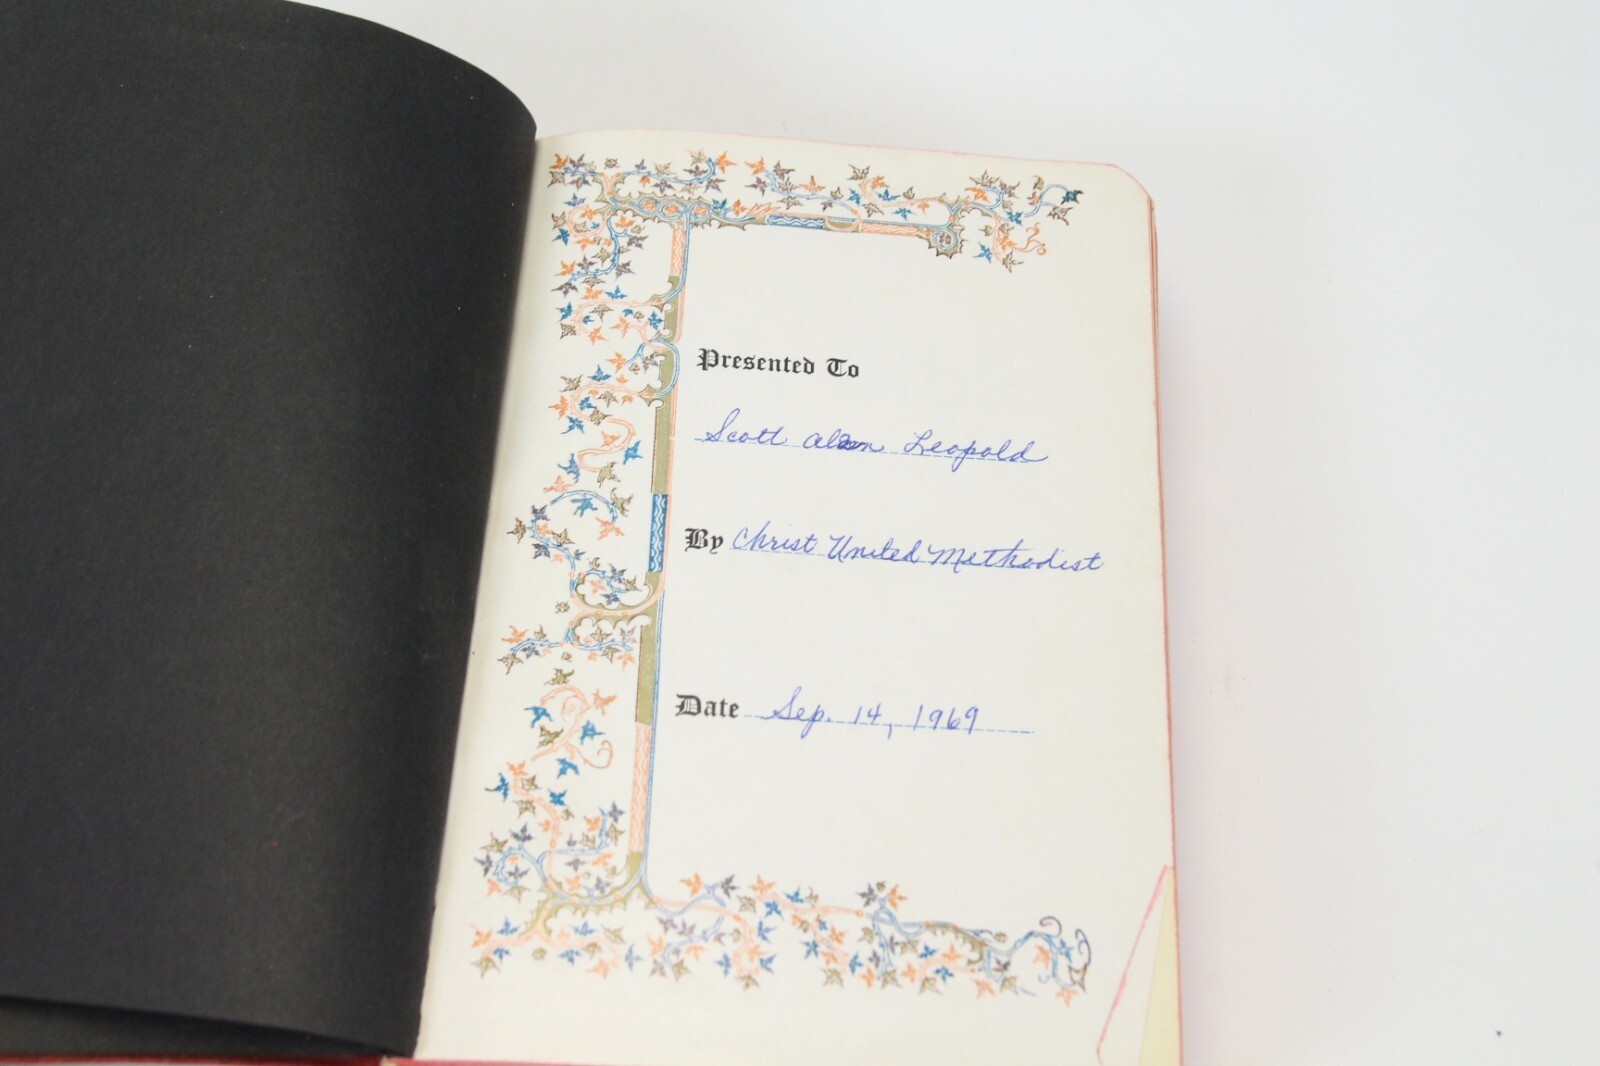 Presented To
Scott Leopold
By Christ United Methodist
Date Sep. 14, 1969